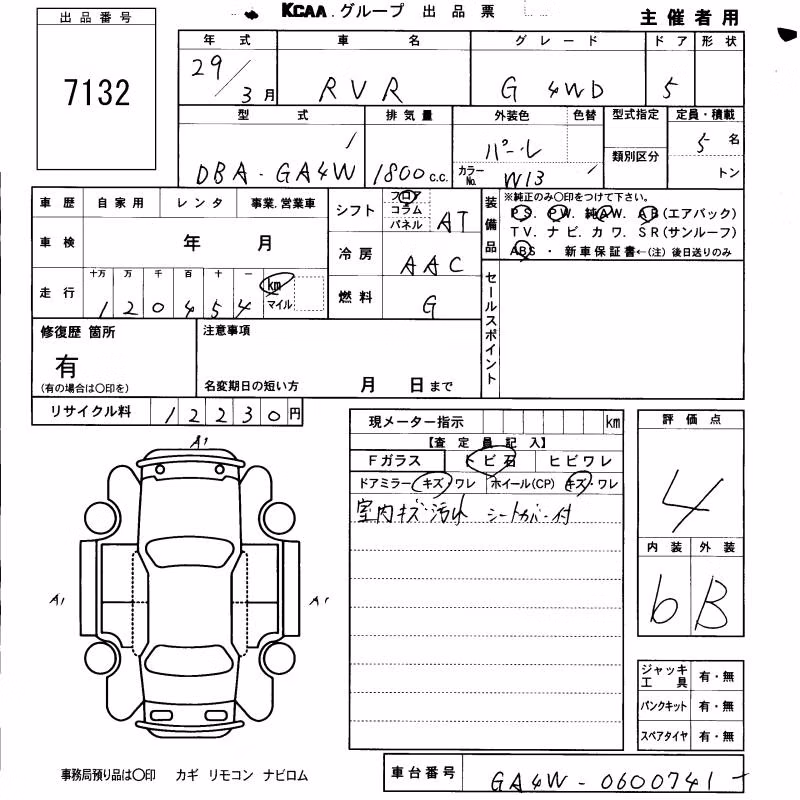 KCAA.グループ 出品票
主催者用
出品番号
7132
年式 車名 グレード ドア 形状
29/3月 RVR G 4WD 5
型式 排気量 外装色 色替 型式指定 定員・積載
DBA-GA4W 1800c.c. パール カラーNo. W13 類別区分 5名
トン
車歴 自家用 レンタ 事業.営業車
車検 年 月
走行 十万 万 千 百 十 一
120454 km マイル
シフト フロア コラム パネル AT
冷房 AAC
燃料 G
装備品
※純正のみ〇印をつけて下さい。
PS. PW. 純AW. AB(エアバック)
TV. ナビ. カワ. SR(サンルーフ)
ABS ・ 新車保証書←(注) 後日送りのみ
セールスポイント
修復歴 箇所
有
(有の場合は〇印を)
注意事項
名変期日の短い方 月 日まで
リサイクル料 12230円
現メーター指示 km
【査定員記入】
Fガラス トビ石 ヒビワレ
ドアミラー キズ・ワレ ホイール(CP) キズ・ワレ
室内キズ・汚れ シートカバー付
評価点
4
内装 外装
b B
A1
A1 A1
ジャッキ工具 有・無
パンクキット 有・無
スペアタイヤ 有・無
事務局預り品は〇印 カギ リモコン ナビロム
車台番号 GA4W-0600741